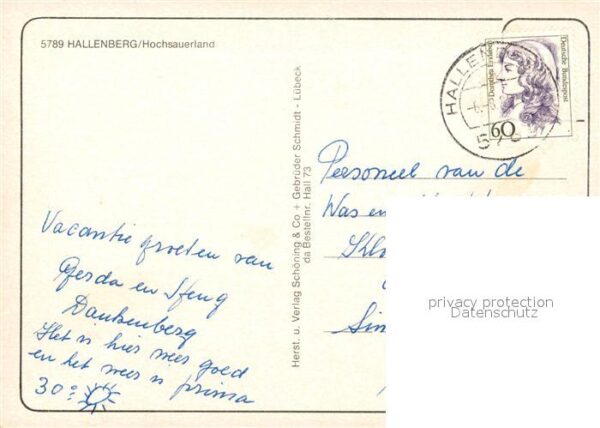 5789 HALLENBERG/Hochsauerland
Vacantie groeten van
Gerda en
Dankenberg
Het is hier weer goed
en het weer is prima
30°
Herst. u. Verlag Schöning & Co + Gebrüder Schmidt - Lübeck
da Bestellnr. Hall 73
HALLEN
60
Dorothea Erxleben
Deutsche Bundespost
Personeel van de
Was en
privacy protection
Datenschutz